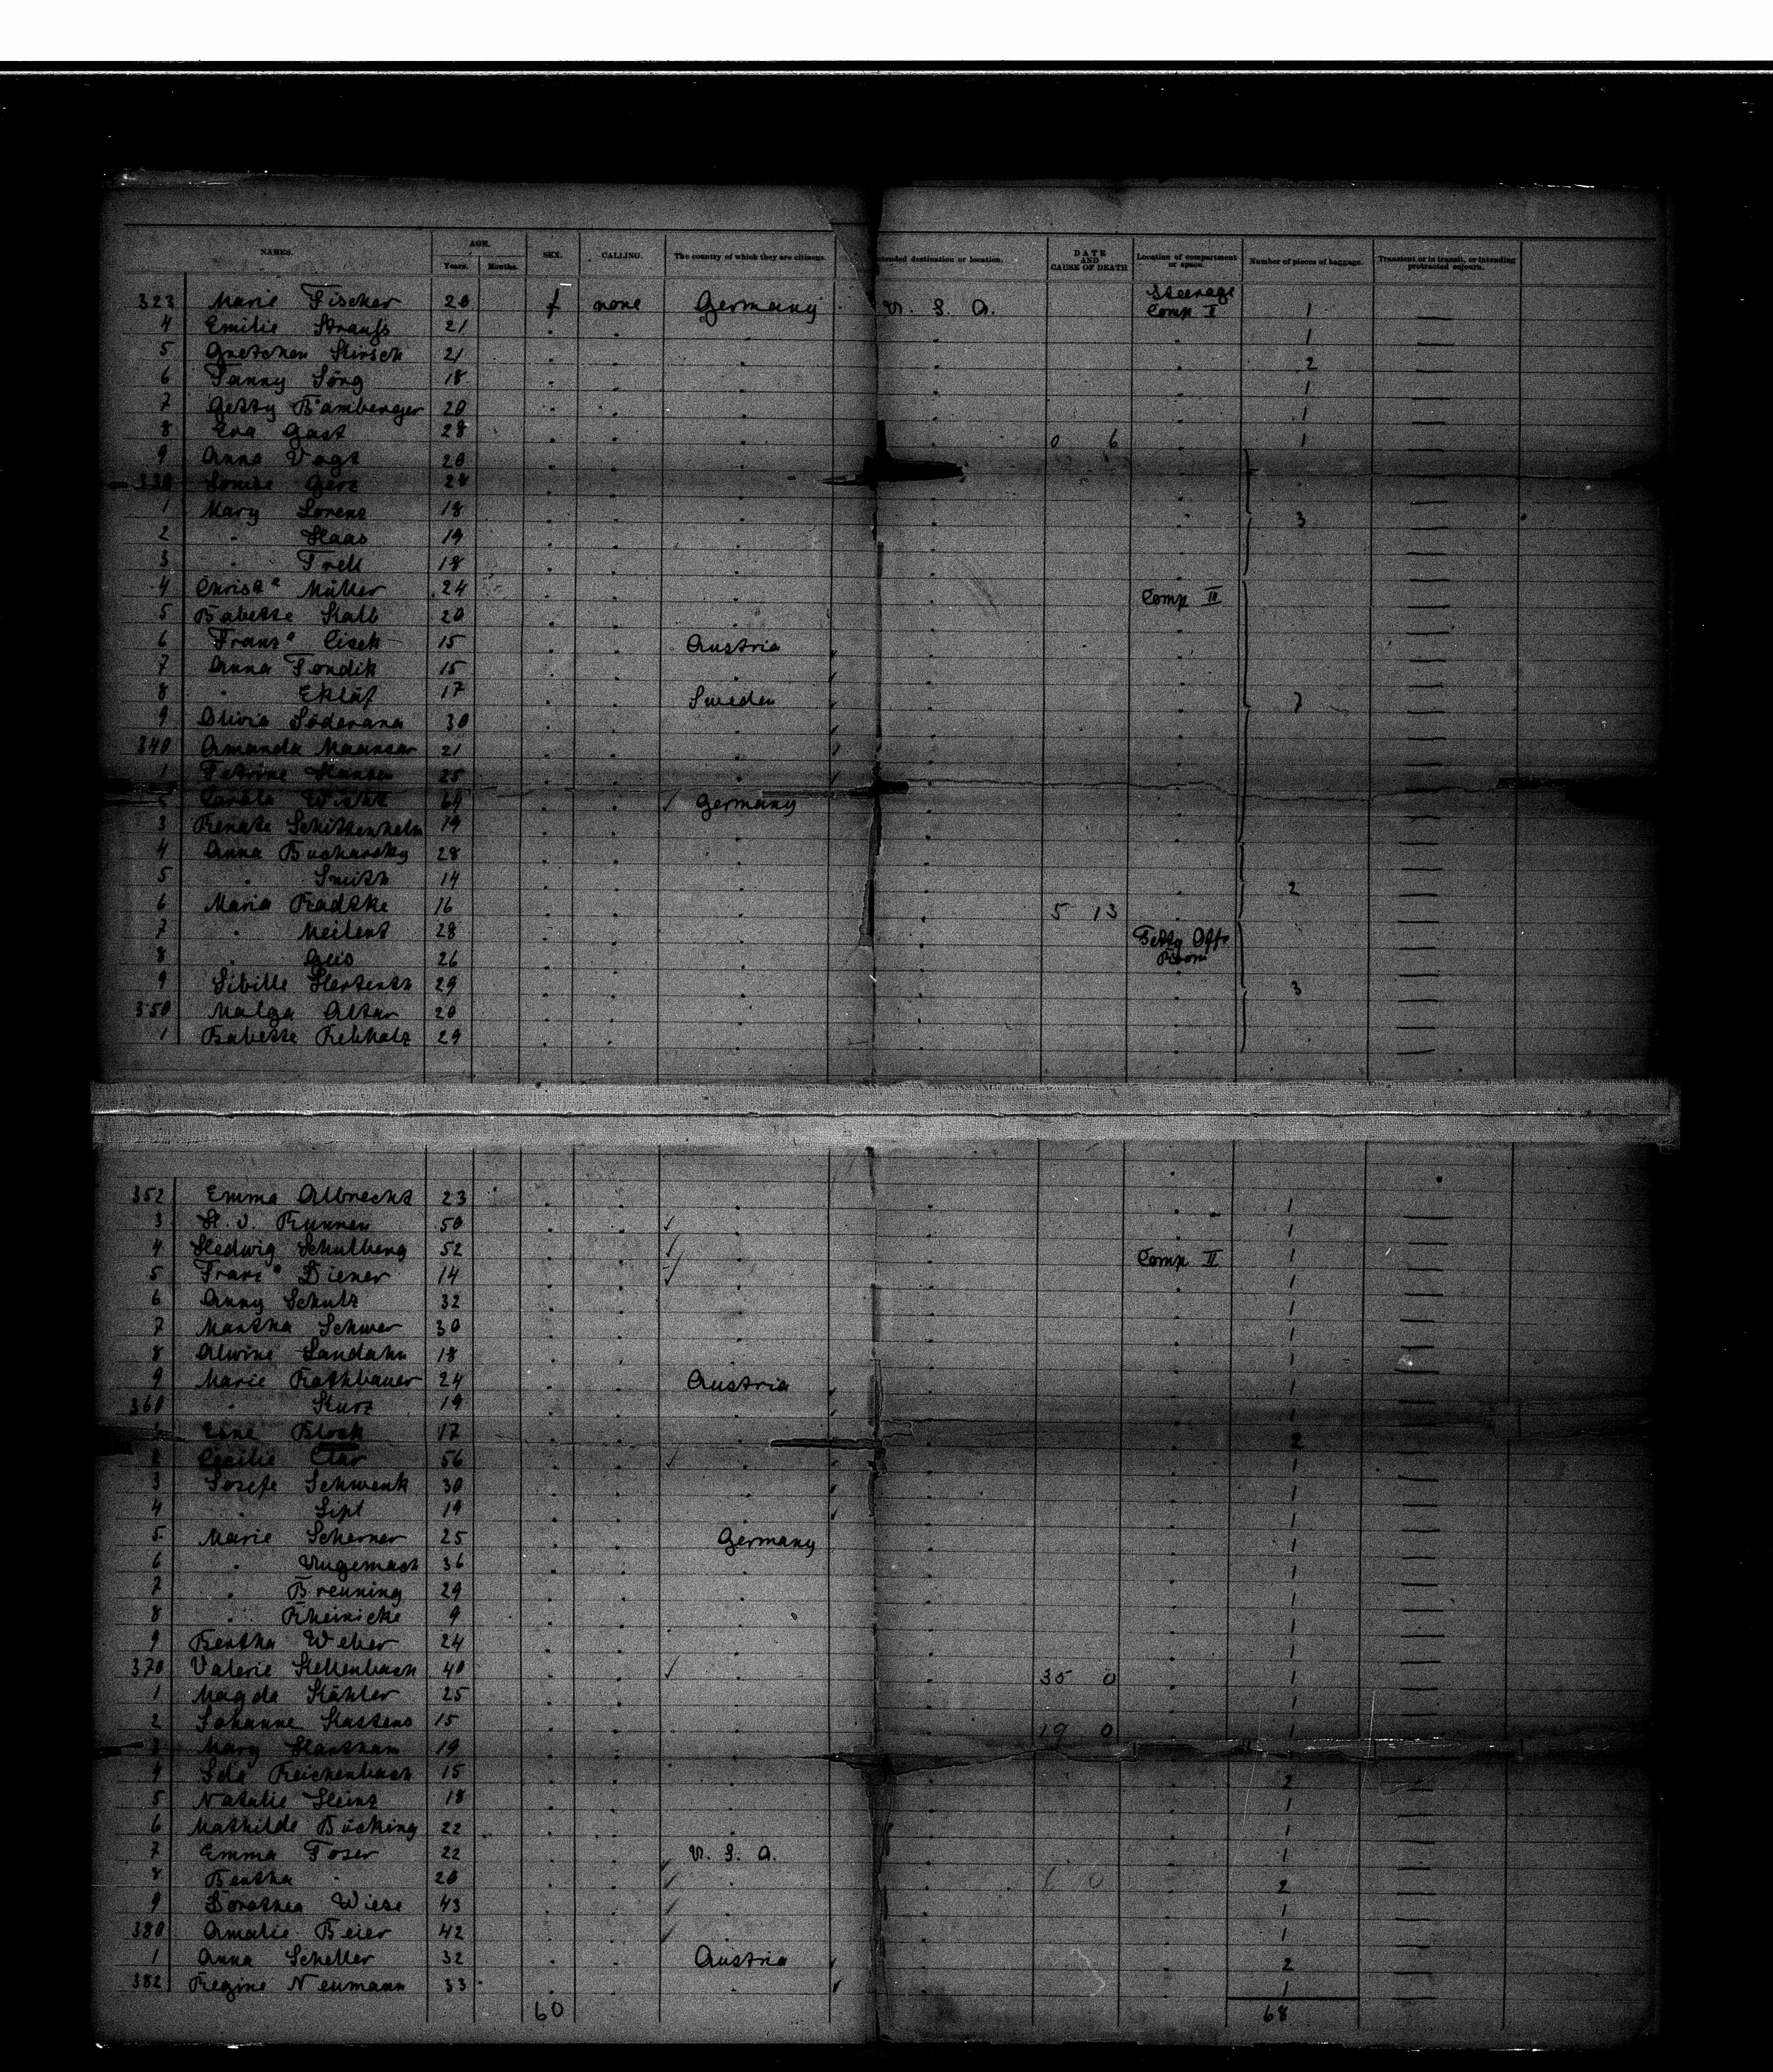 NAMES. AGE. Years. Months. SEX. CALLING. The country of which they are citizens. tended destination or location. DATE AND CAUSE OF DEATH Location of compartment or space. Number of pieces of baggage. Transient or in transit, or intending protracted sojourn.
323 Marie Fischer 20 f none Germany U. S. A. Steerage Comp I 1
4 Emilie Strauss 21 1
5 Gretchen Hirsch 21 2
6 Fanny Jörg 18 1
7 Getty Bamberger 20 1
8 Eva Gast 28 0 6 1
9 Anna Vogt 20
330 Louise Gerz 28
1 Mary Lorenz 18 3
2 " Haas 19
3 " Trell 18
4 Christe Müller 24 Comp III
5 Babette Kalb 20
6 Franza Cisek 15 Austria
7 Anna Fondik 15
8 " Eklöf 17 Sweden 7
9 Olivia Söderana 30
340 Amanda Maansar 21
1 Petrine Hansen 25
Carola 64 Germany
3 Renate Schittenhelm 19
4 Anna Bucharsky 28
5 " Smith 14 2
6 Maria Radtke 16 5 13
7 " Meilent 28 Petty Offr Room
8 " Geis 26
9 Sibille Hertentz 29 3
350 Malga Altar 20
1 Babette Rebholz 29
352 Emma Albrecht 23 1
3 H. J. Runnen 50 1
4 Hedwig Schulberg 52 Comp II 1
5 Franza Diener 14 1
6 Anny Schulz 32 1
7 Martha Schwer 30 1
8 Alwine Landahn 18 1
9 Marie Rothbauer 24 Austria 1
360 " Kurz 19 1
Block 17 2
2 Cecilie Clar 56 1
3 Josefe Schwenk 30 1
4 " Sipl 19 1
5 Marie Scherner 25 Germany 1
6 " Ungemach 36 1
7 " Breuning 29 1
8 " Rheinicke 9 1
9 Bertha Weber 24 1
370 Valerie Hellenbach 40 35 0 1
1 Magda Kähler 25 1
2 Johanne Kastens 15 19 0 1
3 Mary Hartham 19
4 Ida Reichenbach 15 2
5 Natalie Heinz 18 1
6 Mathilde Bücking 22 1
7 Emma Foser 22 U. S. A. 1
8 Bertha " 20 6 0 2
9 Dorothea Wiese 43 1
380 Amalie Beier 42 1
1 Anna Scheller 32 Austria 2
382 Regine Neumann 33 1
60 68